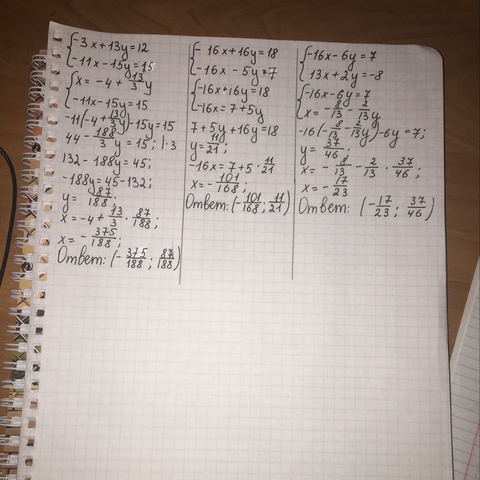 {-3x+13y=12
{-11x-15y=15
{x=-4+13/3y
{-11x-15y=15
-11(-4+13/3y)-15y=15
44-188/3y=15; |·3
132-188y=45;
-188y=45-132;
y=87/188;
x=-4+13/3·87/188;
x=-375/188;
Ответ: (-375/188; 87/188)
{-16x+16y=18
{-16x-5y=7
{-16x+16y=18
{-16x=7+5y
7+5y+16y=18
y=11/21;
-16x=7+5·11/21
x=-101/168;
Ответ: (-101/168; 11/21)
{-16x-6y=7
{13x+2y=-8
{-16x-6y=7
{x=-8/13-2/13y
-16(-8/13-2/13y)-6y=7;
y=37/46;
x=-8/13-2/13·37/46;
x=-17/23
Ответ: (-17/23; 37/46)